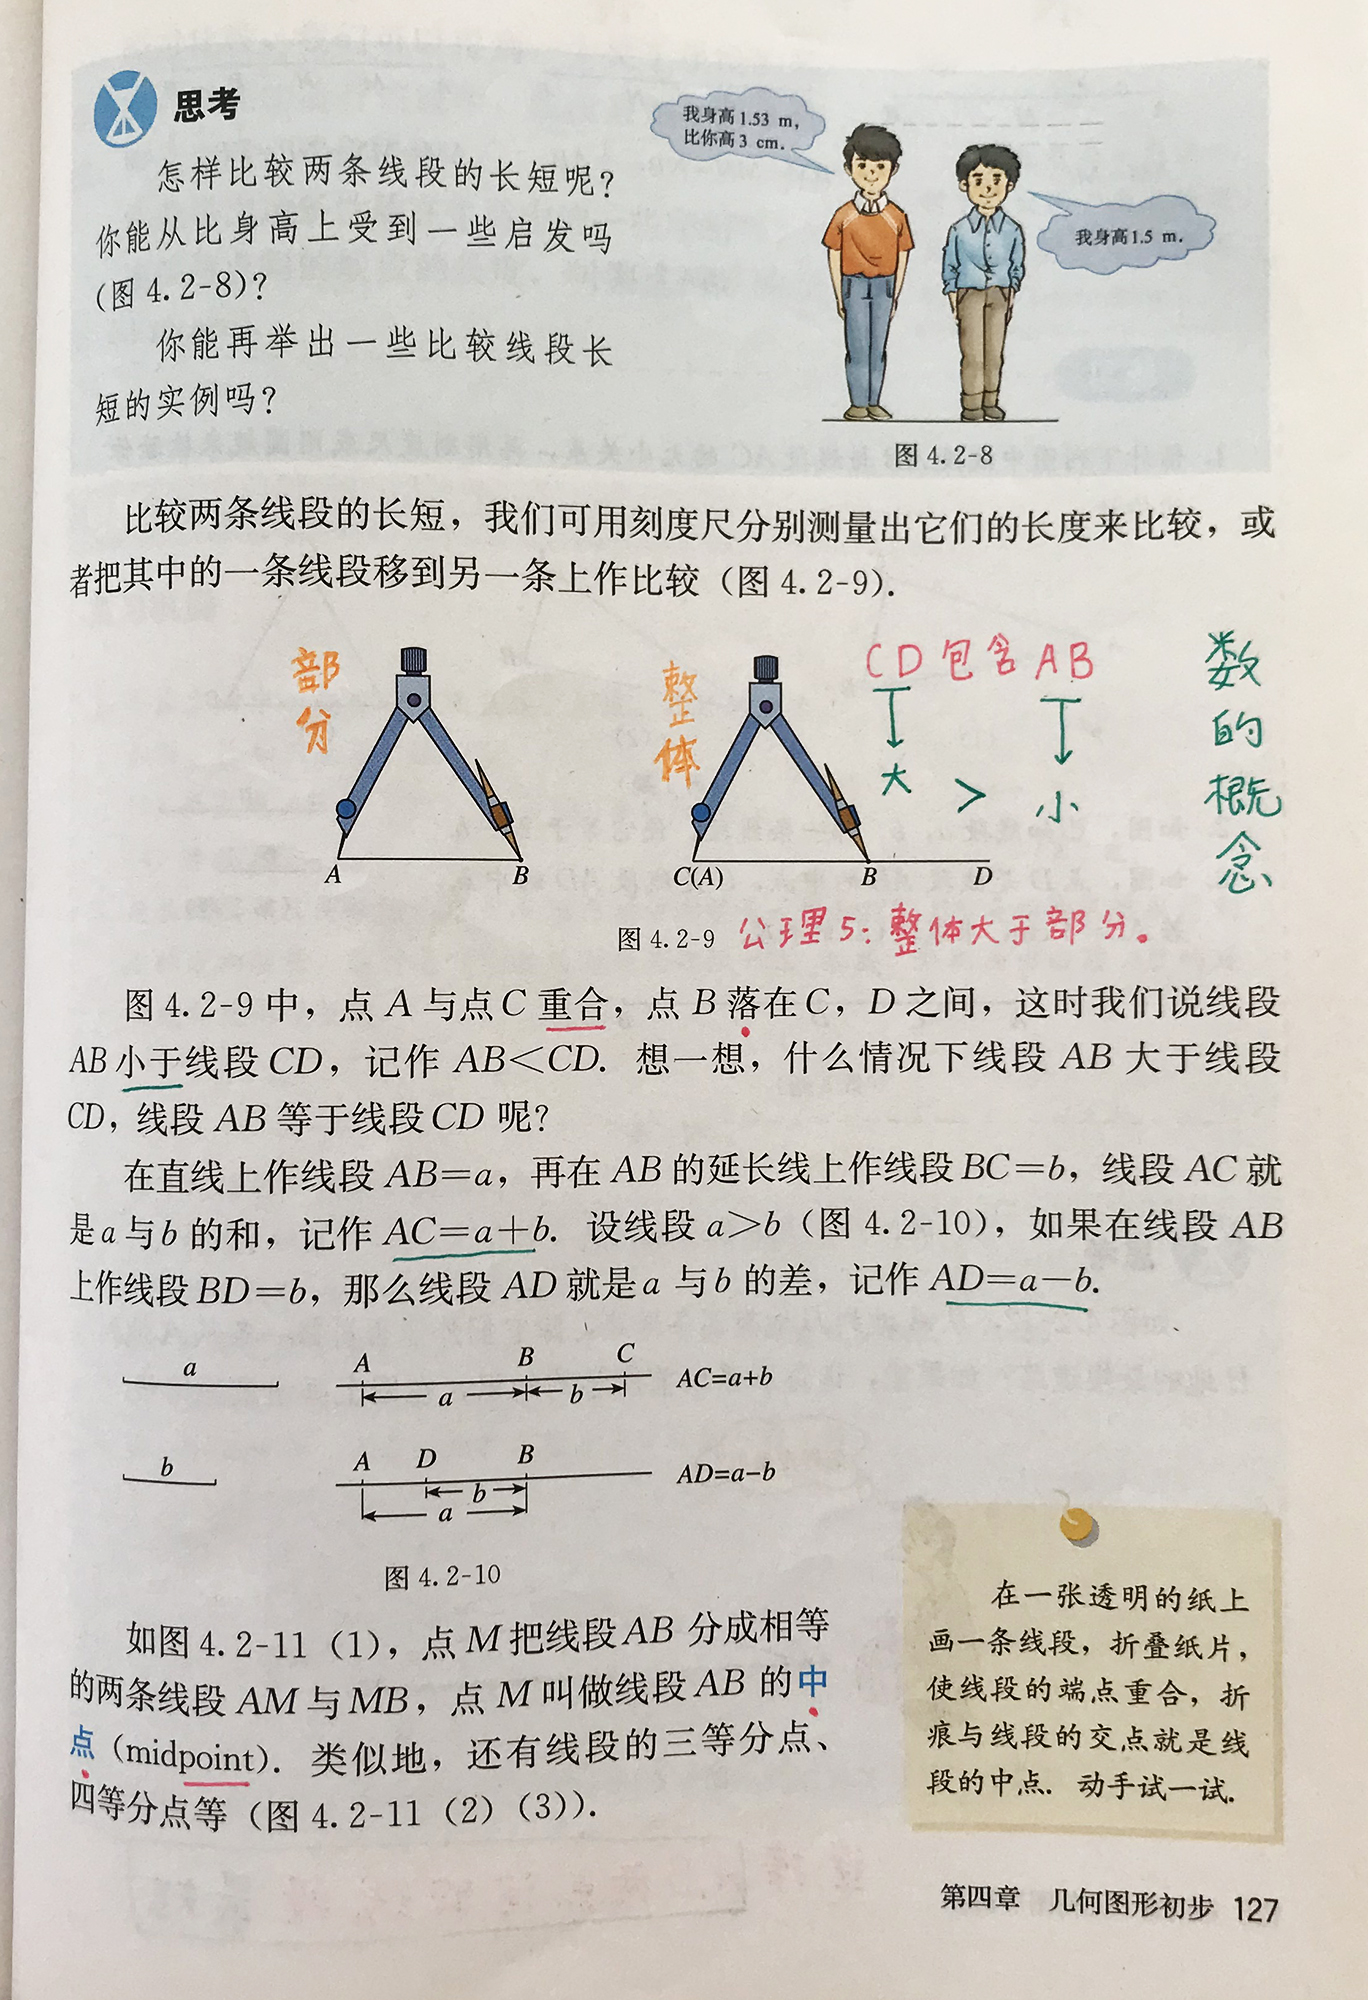 思考
怎样比较两条线段的长短呢？
你能从比身高上受到一些启发吗
(图4.2-8)？
你能再举出一些比较线段长
短的实例吗？
我身高1.53 m，
比你高3 cm.
我身高1.5 m.
图4.2-8
比较两条线段的长短，我们可用刻度尺分别测量出它们的长度来比较，或
者把其中的一条线段移到另一条上作比较（图4.2-9）.
部分
整体
CD包含AB
大 > 小
数的概念
A B
C(A) B D
图4.2-9 公理5：整体大于部分。
图4.2-9中，点A与点C重合，点B落在C，D之间，这时我们说线段
AB小于线段CD，记作AB<CD. 想一想，什么情况下线段AB大于线段
CD，线段AB等于线段CD呢？
在直线上作线段AB=a，再在AB的延长线上作线段BC=b，线段AC就
是a与b的和，记作AC=a+b. 设线段a>b（图4.2-10），如果在线段AB
上作线段BD=b，那么线段AD就是a与b的差，记作AD=a-b.
a
A B C
a b
AC=a+b
b
A D B
b
a
AD=a-b
图4.2-10
如图4.2-11（1），点M把线段AB分成相等
的两条线段AM与MB，点M叫做线段AB的中
点（midpoint）. 类似地，还有线段的三等分点、
四等分点等（图4.2-11（2）（3））.
在一张透明的纸上
画一条线段，折叠纸片，
使线段的端点重合，折
痕与线段的交点就是线
段的中点. 动手试一试.
第四章 几何图形初步 127